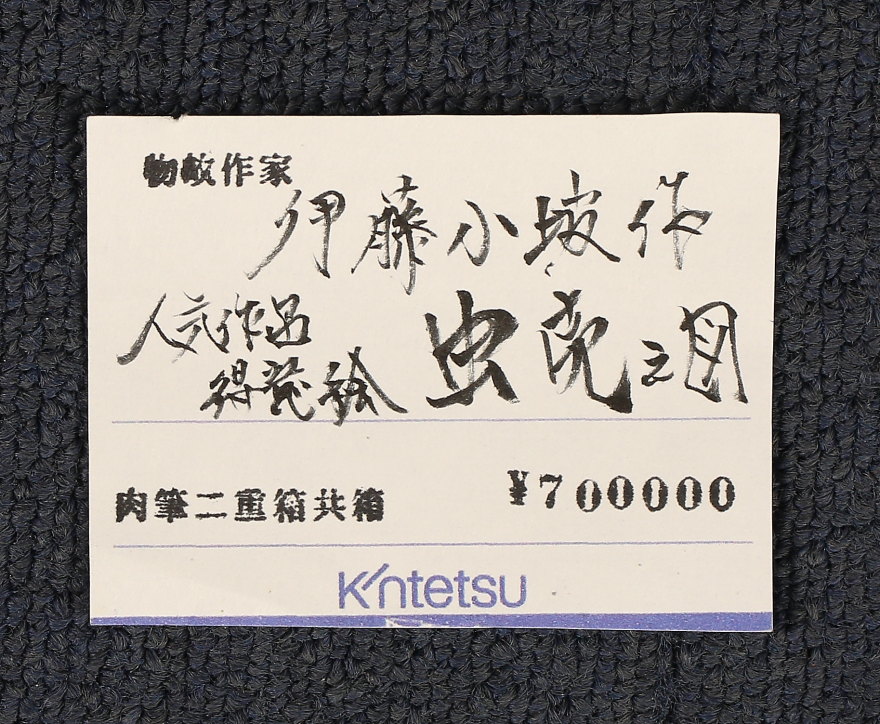 物故作家
伊藤小坡作
人気作品
得意絵
虫売之図
肉筆二重箱共箱
¥700000
Kintetsu